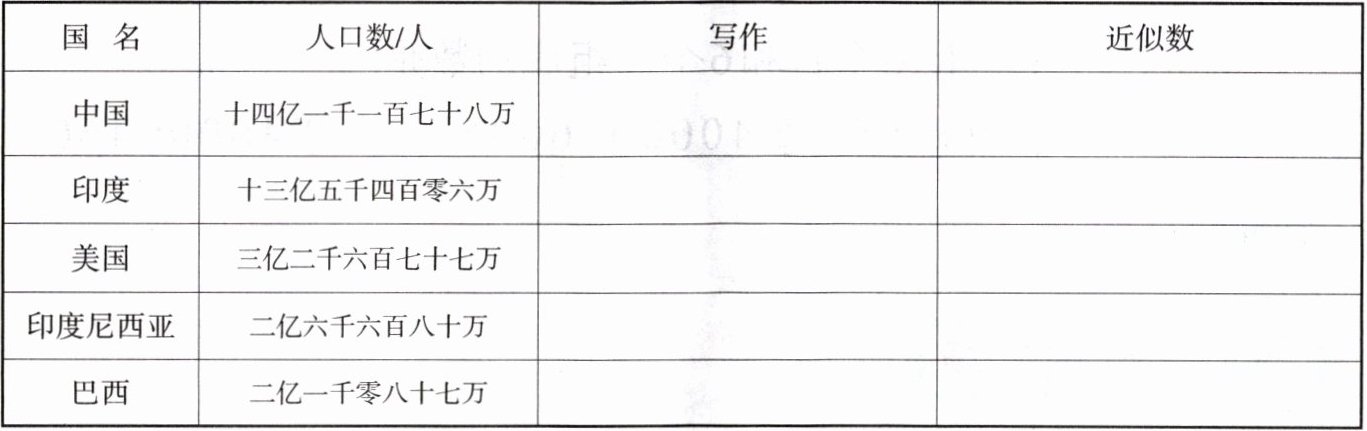 国 名 人口数/人 写作 近似数
中国 十四亿一千一百七十八万
印度 十三亿五千四百零六万
美国 三亿二千六百七十七万
印度尼西亚 二亿六千六百八十万
巴西 二亿一千零八十七万